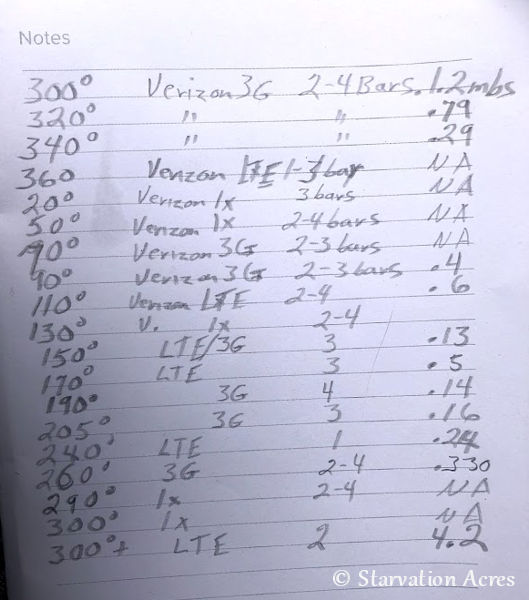 Notes
300° Verizon 3G 2-4 Bars .1.2mbs
320° " " .79
340° " " .29
360 Verizon LTE 1-3 bar NA
20° Verizon 1x 3 bars NA
50° Verizon 1x 2-4 bars NA
70° Verizon 3G 2-3 bars NA
90° Verizon 3G 2-3 bars .4
110° Verizon LTE 2-4 .6
130° V. 1x 2-4
150° LTE/3G 3 .13
170° LTE 3 .5
190° 3G 4 .14
205° 3G 3 .16
240° LTE 1 .24
260° 3G 2-4 .330
290° 1x 2-4 NA
300° 1x NA
300°+ LTE 2 4.2
© Starvation Acres